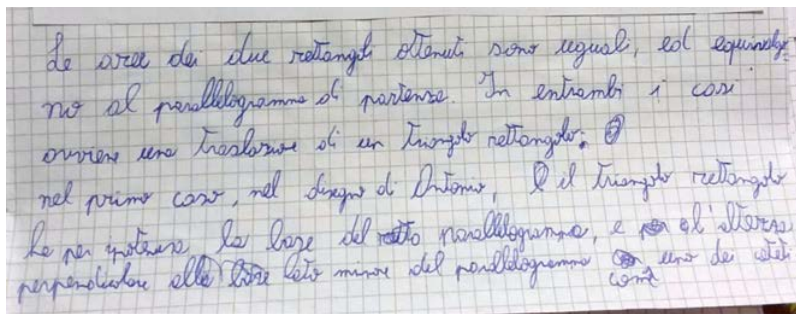 Le aree dei due rettangoli ottenuti sono uguali, ed equivalgo-
no al parallelogramma di partenza. In entrambi i casi
avviene una traslazione di un triangolo rettangolo:
nel primo caso, nel disegno di Antonio, il triangolo rettangolo
ha per ipotenusa la base del parallelogramma, e l'altezza
perpendicolare alla lato minore del parallelogramma come uno dei cateti